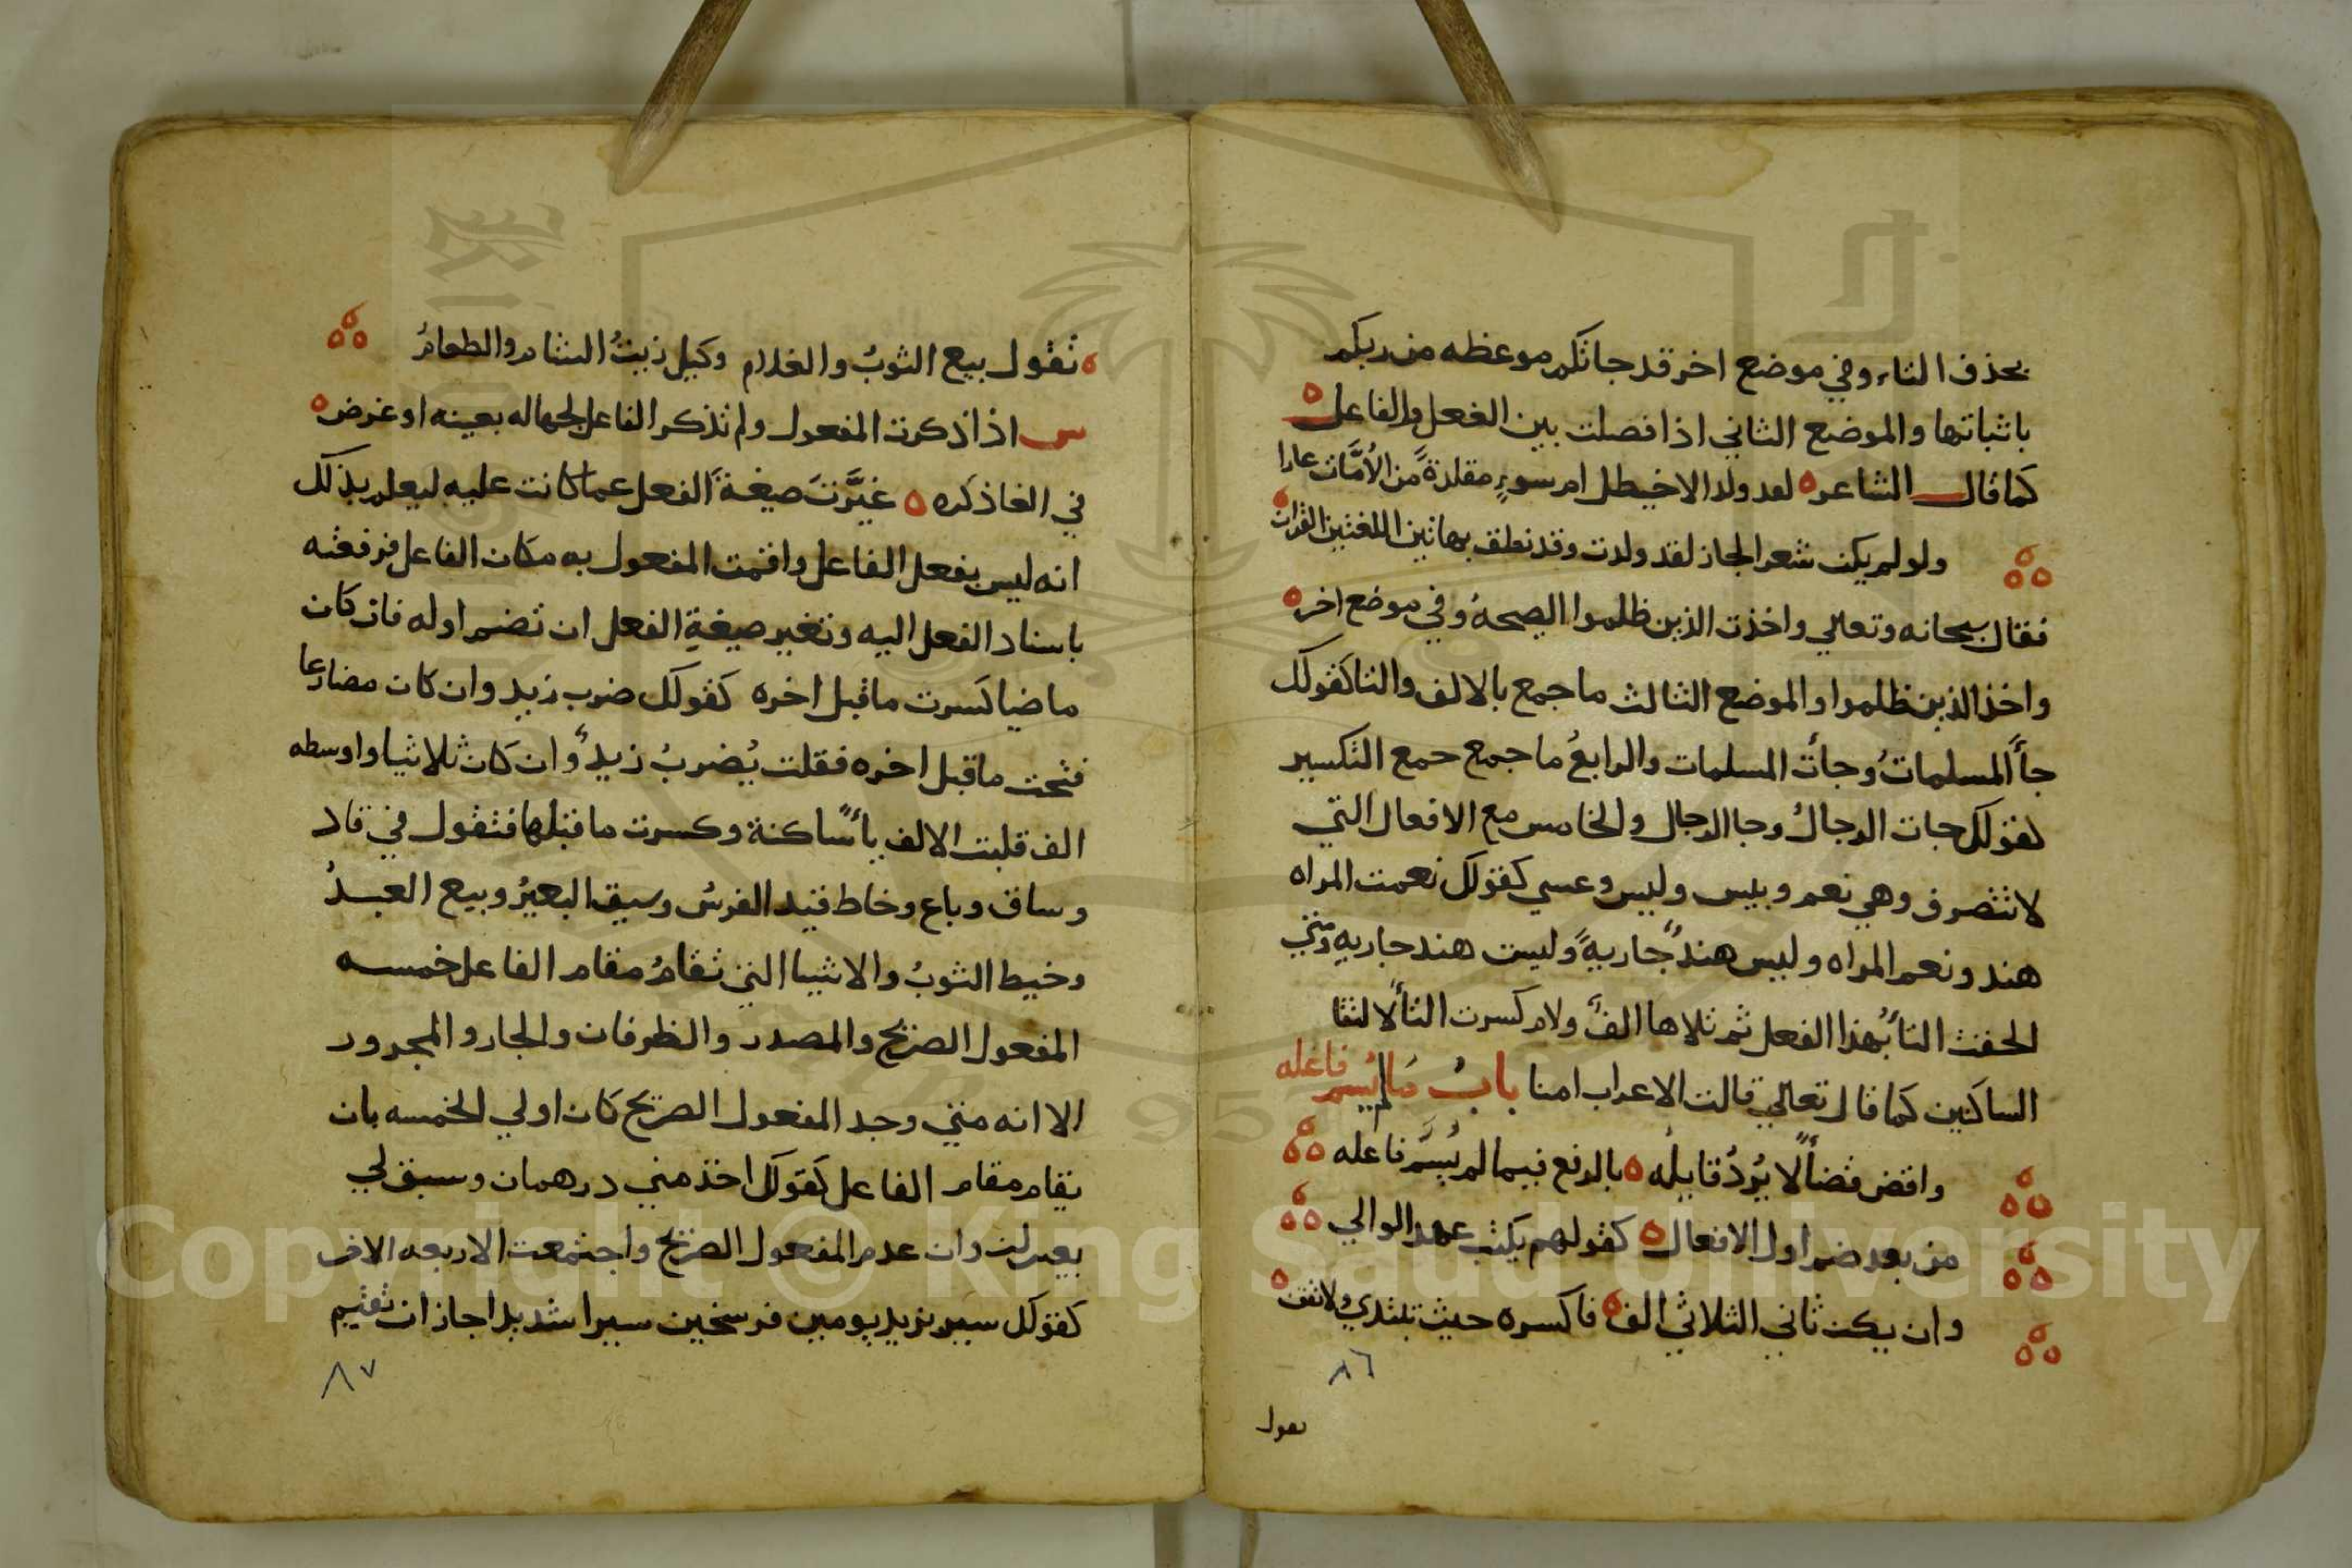 بحذف التاء وفي موضع اخر قد جاتكم موعظه من ربكم
باثباتها والموضع الثاني اذا فصلت بين الفعل والفاعل
كما قال الشاعر لقد ولد الاخيطل ام سوءٍ مقلدةً من الأمّات عارا
ولو لم يكن شعر الجاز لقد ولدت وقد نطق بهاتين اللغتين القران
فقال سبحانه وتعالي واخذت الذين ظلموا الصيحة وفي موضع اخر
واخذ الذين ظلموا والموضع الثالث ما جمع بالالف والتا كقولك
جأ المسلماتُ وجأت المسلمات والرابعُ ما جمع جمع التكسير
كقولك جات الرجالُ وجا الرجال والخامس مع الافعال التي
لا تتصرف وهي نعم وبيس وليس وعسي كقولك نعمت المراه
هند ونعم المراه وليس هندٌ جاريةً وليست هند جاريه ومتي
الحقت التأ بهذا الفعل ثم تلاها الفٌ ولام كسرت التأ لالتقا
الساكنين كما قال تعالي قالت الاعراب امنا بابُ مَا لم يُسم فاعله
واقض قضأً لا يُردُ قايلُه بالرفع فيما لم يُسَمَّ فاعله
من بعد ضم اول الافعال كقولهم يكتب عهد الوالي
وان يكن ثاني الثلاثي الف فاكسره حيث تبتدي ولا تقف
٨٦
تقول
تقول بيع الثوبُ والغلام وكيل زيتُ الشام والطعامُ
س اذا ذكرت المفعول ولم تذكر الفاعل لجهاله بعينه او غرض
في الغا ذكره غيَّرتَ صيغةَ الفعل عما كانت عليه ليعلم بذلك
انه ليس بفعل الفاعل واقمت المفعول به مكان الفاعل فرفعته
باسناد الفعل اليه وتغير صيغةِ الفعل ان تضم اوله فان كان
ماضيا كسرت ما قبل اخره كقولك ضرب زيد وان كان مضارعا
فتحت ما قبل اخره فقلت يُضربُ زيدٌ وان كان ثلاثيا واوسطه
الف قلبت الالف يأً ساكنة وكسرت ما قبلها فتقول في قاد
وساق وباع وخاط قيد الفرسُ وسيق البعيرُ وبيع العبدُ
وخيط الثوبُ والاشيا التي تقامُ مقام الفاعل خمسه
المفعول الصريح والمصدر والظرفان والجار والمجرور
الا انه متي وجد المفعول الصريح كان اولي الخمسه بان
يقام مقام الفاعل كقولك اخذ مني درهمان وسبق لي
بعيران وان عدم المفعول الصريح واجتمعت الاربعه الاخر
كقولك سير بزيد يومين فرسخين سيرا شديدا جاز ان تقيم
٨٧
Copyright © King Saud University